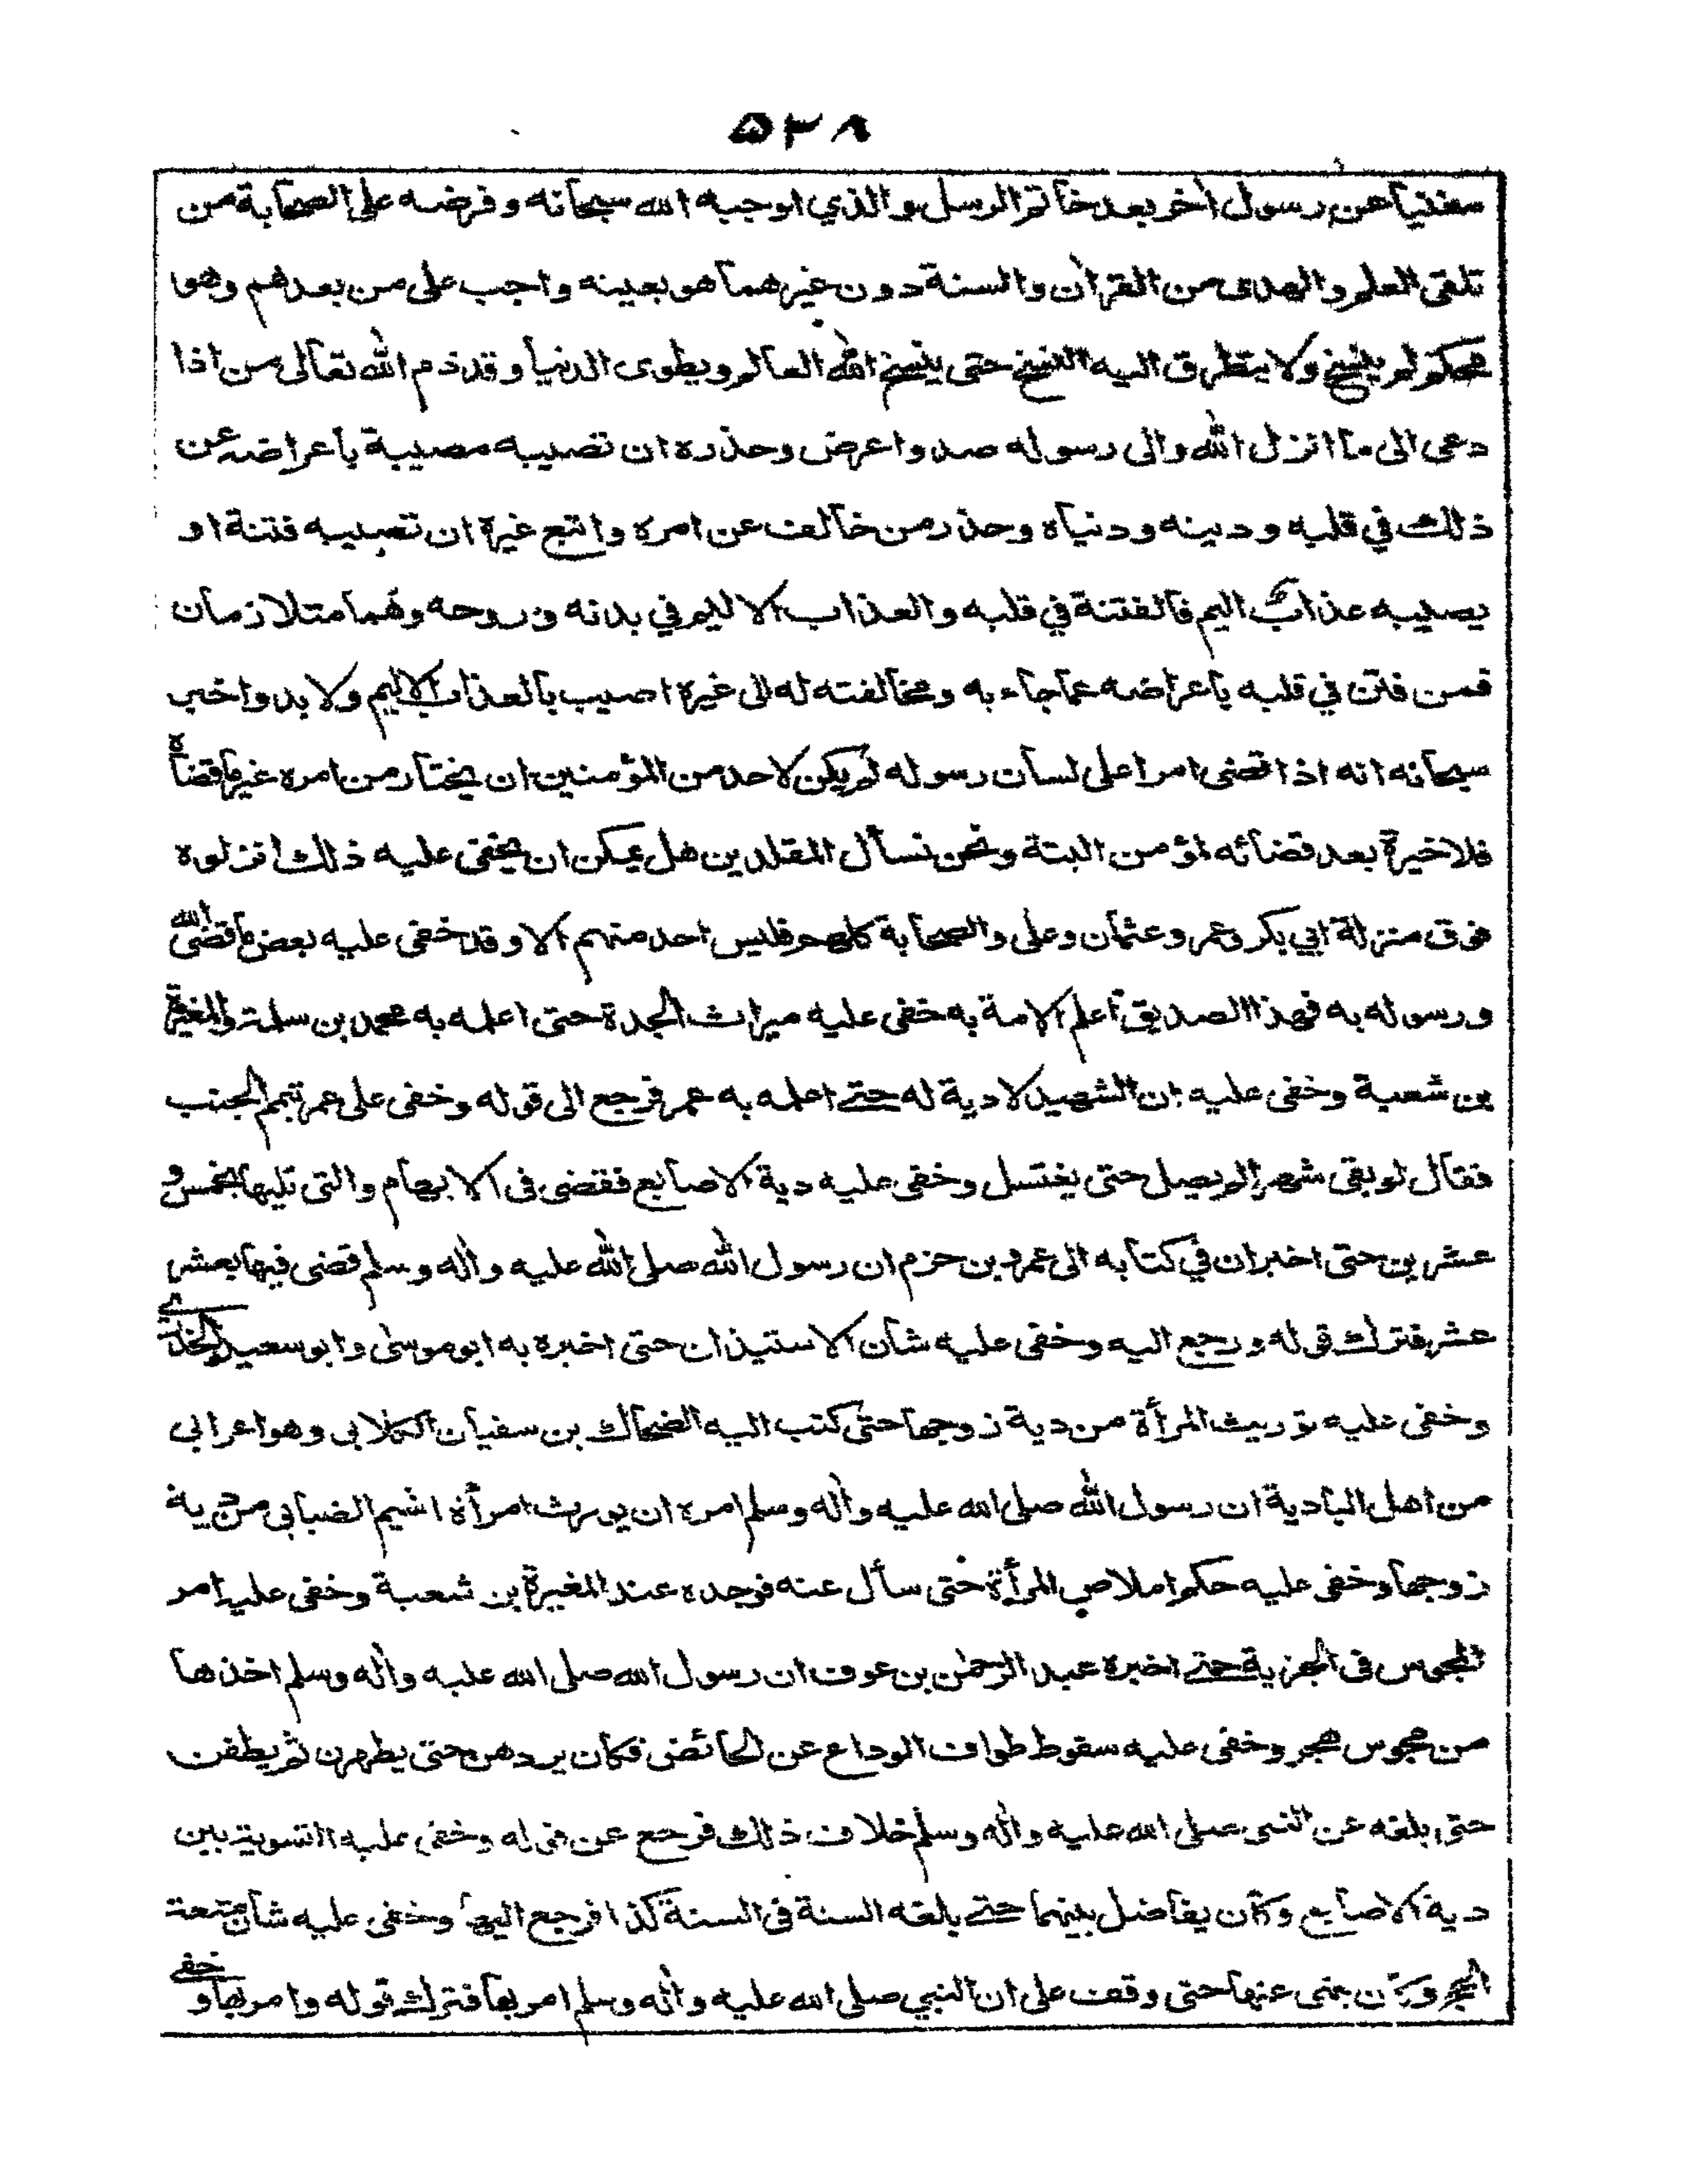 ۵۳۸
مغنيا عن رسول اخر بعد خاتم الرسل والذي اوجبه الله سبحانه وفرضه على الصحابة من
تلقى العلم والهدى من القرآن والسنة دون غيرهما هو بعينه واجب على من بعدهم وهو
محكم لم ينسخ ولا يتطرق اليه النسخ حتى ينسخ الله العالم ويطوى الدنيا وقد ذم الله تعالى من اذا
دعى الى ما انزل الله والى رسوله صد واعرض وحذره ان تصيبه مصيبة باعراضه عن
ذلك في قلبه ودينه ودنياه وحذر من خالف عن امره واتبع غيره ان تصيبه فتنة او
يصيبه عذاب اليم فالفتنة في قلبه والعذاب الاليم في بدنه وروحه وهما متلازمان
فمن فتن في قلبه باعراضه عما جاء به ومخالفته له الى غيره اصيب بالعذاب الاليم ولا بد واخبر
سبحانه انه اذا قضى امرا على لسان رسوله لم يكن لاحد من المؤمنين ان يختار من امره غير ما قضاه
فلا خيرة بعد قضائه لمؤمن البتة ونحن نسأل المقلدين هل يمكن ان يخفى عليه ذلك انزلوه
فوق منزلة ابي بكر وعمر وعثمان وعلى والصحابة كلهم فليس احد منهم الا وقد خفى عليه بعض ما قضى الله
ورسوله به فهذا الصديق اعلم الامة به خفى عليه ميراث الجدة حتى اعلمه به محمد بن سلمة والمغيرة
بن شعبة وخفى عليه ان الشهيد لا دية له حتے اعلمه به عمر فرجع الى قوله وخفى على عمر تيمم الجنب
فقال لو بقى شهرا لم يصل حتى يغتسل وخفى عليه دية الاصابع فقضى فى الابهام والتى تليها بخمس و
عشرين حتى اخبر ان في كتابه الى عمرو بن حزم ان رسول الله صلى الله عليه واله وسلم قضى فيها بعشر
عشر فترك قوله ورجع اليه وخفى عليه شان الاستيذان حتى اخبره به ابو موسى وابو سعيد الخدرے
وخفى عليه توريث المرأة من دية زوجها حتى كتب اليه الضحاك بن سفيان الكلابى وهو اعرابى
من اهل البادية ان رسول الله صلى الله عليه واله وسلم امره ان يورث امرأة اشيم الضبابى من دية
زوجها وخفى عليه حكم املاص المرأة حتى سأل عنه فوجده عند المغيرة بن شعبة وخفى عليه امر
المجوس فى الجزية حتے اخبره عبد الرحمن بن عوف ان رسول الله صلى الله عليه واله وسلم اخذها
من مجوس هجر وخفى عليه سقوط طواف الوداع عن الحائض فكان يردهن حتى يطهرن ثم يطفن
حتى بلغه عن النبى صلى الله عليه واله وسلم خلاف ذلك فرجع عن قوله وخفى عليه التسوية بين
دية الاصابع وكان يفاضل بينهما حتے بلغه السنة فى السنة كذا فرجع اليها وخفى عليه شان متعة
الحج وكان ينهى عنها حتى وقف على ان النبي صلى الله عليه واله وسلم امر بها فترك قوله وامر بها وخفے